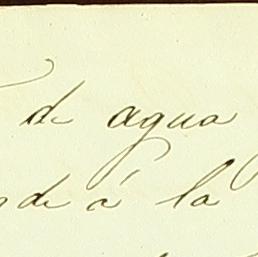 de agua
de á la